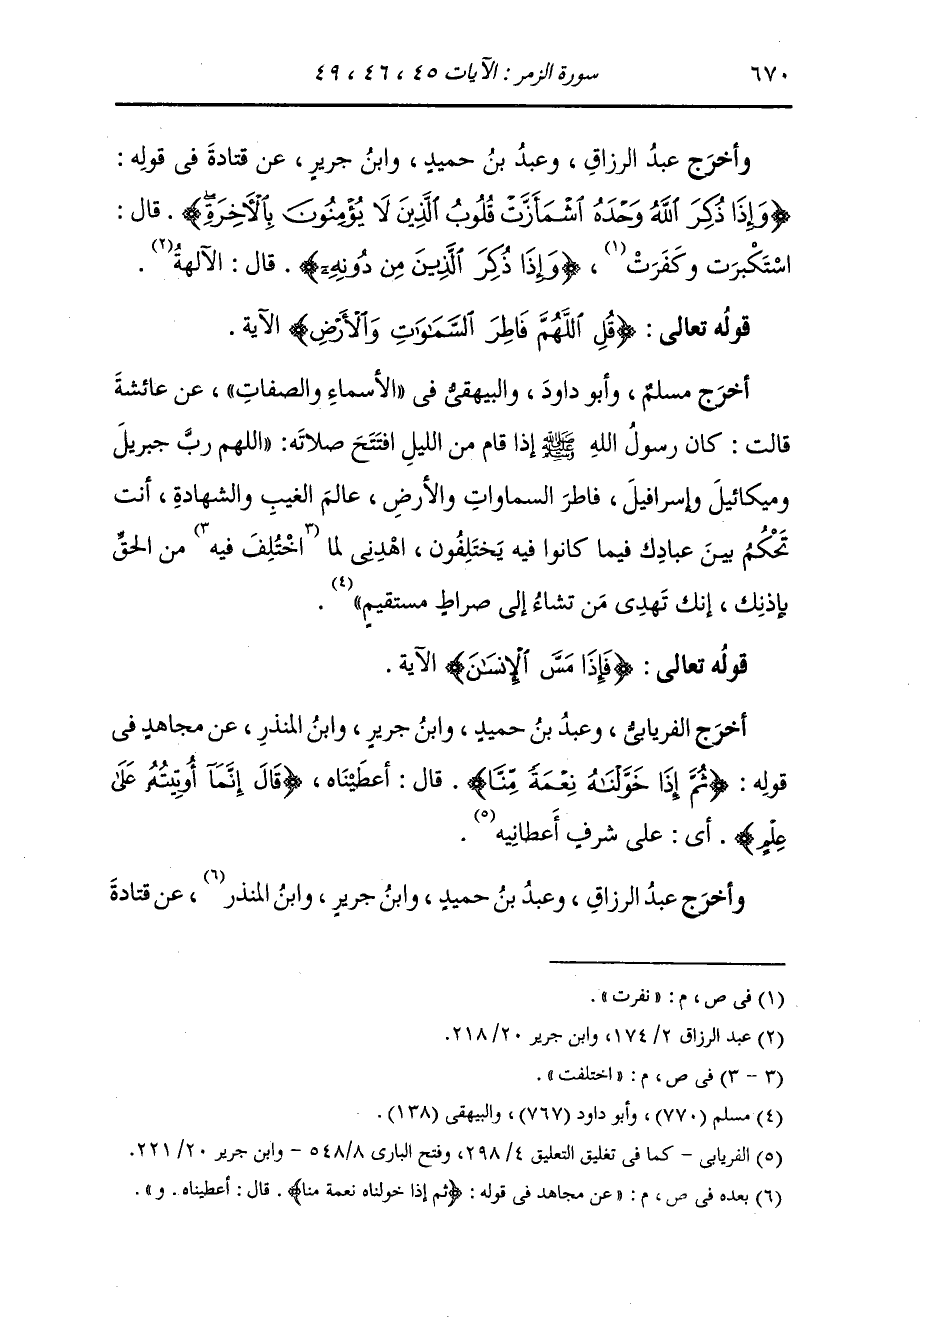 ٦٧٠ سورة الزمر : الآيات ٤٥ ، ٤٦ ، ٤٩
وأخرَج عبدُ الرزاقِ ، وعبدُ بنُ حميدٍ ، وابنُ جريرٍ ، عن قتادةَ فى قولِه :
﴿وَإِذَا ذُكِرَ ٱللَّهُ وَحْدَهُ ٱشْمَأَزَّتْ قُلُوبُ ٱلَّذِينَ لَا يُؤْمِنُونَ بِٱلْأَخِرَةِۖ﴾ . قال :
اسْتَكْبرَت وكَفَرَتْ(١) ، ﴿وَإِذَا ذُكِرَ ٱلَّذِينَ مِن دُونِهِۦ﴾ . قال : الآلهةُ(٢) .
قولُه تعالى : ﴿قُلِ ٱللَّهُمَّ فَاطِرَ ٱلسَّمَٰوَٰتِ وَٱلْأَرْضِ﴾ الآية .
أخرَج مسلمٌ ، وأبو داودَ ، والبيهقىُّ فى «الأسماءِ والصفاتِ» ، عن عائشةَ
قالت : كان رسولُ اللهِ ﷺ إذا قام من الليلِ افتَتَحَ صلاتَه: «اللهم ربَّ جبريلَ
وميكائيلَ وإسرافيلَ ، فاطرَ السماواتِ والأرضِ ، عالمَ الغيبِ والشهادةِ ، أنت
تَحْكُمُ بينَ عبادِك فيما كانوا فيه يَختَلِفُون ، اهْدِنِى لما (٣اخْتُلِفَ فيه٣) من الحقِّ
بإذنِك ، إنك تَهدِى مَن تشاءُ إلى صراطٍ مستقيمٍ»(٤) .
قولُه تعالى : ﴿فَإِذَا مَسَّ ٱلْإِنسَٰنَ﴾ الآية .
أخرَج الفريابىُّ ، وعبدُ بنُ حميدٍ ، وابنُ جريرٍ ، وابنُ المنذرِ ، عن مجاهدٍ فى
قولِه : ﴿ثُمَّ إِذَا خَوَّلْنَٰهُ نِعْمَةً مِّنَّا﴾ . قال : أعطَيْنَاه ، ﴿قَالَ إِنَّمَآ أُوتِيتُهُۥ عَلَىٰ
عِلْمٍ﴾ . أى : على شرفٍ أَعطانِيه(٥) .
وأخرَج عبدُ الرزاقِ ، وعبدُ بنُ حميدٍ ، وابنُ جريرٍ ، وابنُ المنذر(٦) ، عن قتادةَ
(١) فى ص ، م : «نفرت» .
(٢) عبد الرزاق ٢/ ١٧٤، وابن جرير ٢٠/ ٢١٨.
(٣ - ٣) فى ص ، م : «اختلفت» .
(٤) مسلم (٧٧٠) ، وأبو داود (٧٦٧) ، والبيهقى (١٣٨) .
(٥) الفريابى - كما فى تغليق التعليق ٤/ ٢٩٨، وفتح البارى ٨/ ٥٤٨ - وابن جرير ٢٠/ ٢٢١.
(٦) بعده فى ص ، م : «عن مجاهد فى قوله : ﴿ثم إذا خولناه نعمة منا﴾ . قال : أعطيناه . و» .